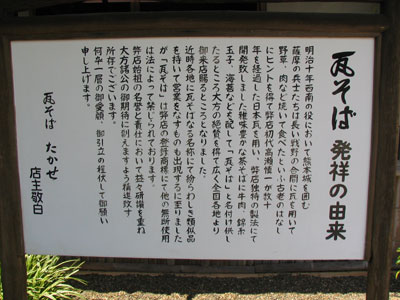 瓦そば 発祥の由来
明治十年西南の役において熊本城を囲む
薩摩の兵士たちは長い戦野の合間に瓦を用いて
野草、肉など焼いて食べたという古老のはなし
にヒントを得て弊店初代高瀬慎一が数十
年を経過した日本瓦を用い、弊店独特の製法にて
開発致しました雅味豊かな茶そばに牛肉、錦糸
玉子、海苔などを配して「瓦そば」と名付け供し
たるところ大方の絶賛を得て広く全国各地より
御来店賜るところとなりました。
近時各地に瓦そばなる名称にて紛らわしき類似品
を持いて営業をなすものも出現するに至りました
が「瓦そば」は弊店の登録商標にて他の無断使用
は法によって禁じられております。
弊店始祖の名誉と責任において益々研鑽を重ね
大方諸公の御期待に副えますよう精進致す
所存でございます。
何卒一層の御愛顧、御引立の程伏して御願い
申し上げます。
瓦そば たかせ
店主敬白